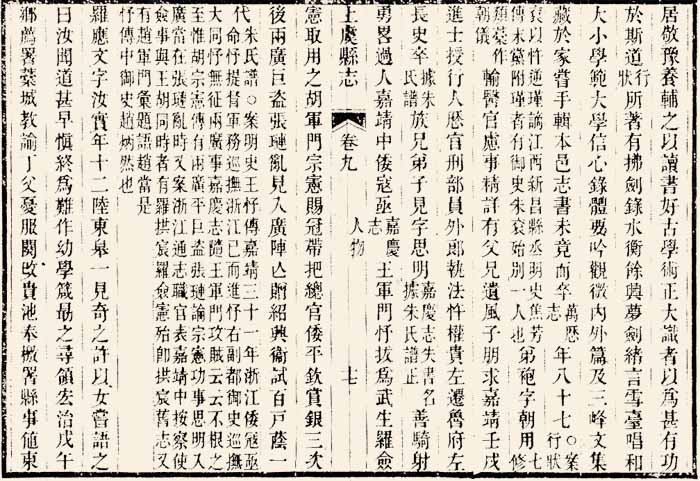 居敬豫養輔之以讀書好古學術正大識者以爲甚有功
於斯道行狀所著有拂劍錄水衡餘興夢劍緒言雪臺唱和
大小學範大學信心錄體要吟觀微內外篇及三峰文集
藏於家嘗手輯本邑志書未竟而卒萬厯志年八十七行狀○案
袞以忤逆瑾謫江西新昌縣丞明史焦芳傳末黨附瑾者有御史朱袞殆別一人也弟砲字朝用七修類藁作朝儀
輸醫官慮事精詳有父兄遺風子朋求嘉靖壬戌
進士授行人厯官刑部員外郎執法忤權貴左遷魯府左
長史卒據朱氏譜族兄弟子見字思明嘉慶志失書名據朱氏譜正善騎射
勇畧過人嘉靖中倭寇亟嘉慶志王軍門忬拔爲武生羅僉
上虞縣志
卷九
人物
七
憲取用之胡軍門宗憲賜冠帶把總官倭平欽賞銀三次
後兩廣巨盜張璉亂見入廣陣亾贈紹興衛試百戸蔭一
代朱氏譜○案明史王忬傳嘉靖三十一年浙江倭寇亟命忬提督軍務巡撫浙江已而進忬右副都御史巡撫
大同忬無征兩廣事嘉慶志隨王軍門攻賊云云不根之至惟胡宗憲傳有兩廣平巨盜張璉論宗憲功事思明入
廣當在張璉亂時又案浙江通志職官表嘉靖中按察使僉事與王胡同時者有羅拱宸羅僉憲殆卽拱宸舊志又
有趙軍門彙題語趙當是忬傳中御史趙炳然也
羅應文字汝實年十二陸東皋一見奇之許以女嘗語之
曰汝聞道甚早慎終爲難作幼學箴勗之尋領宏治戊午
鄉薦署葉城教諭丁父憂服闋改貴池奉檄署縣事値東